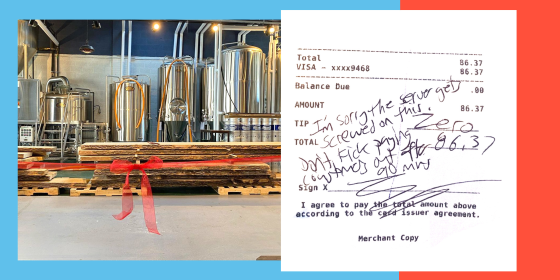 Total 86.37
VISA - xxxx9468 86.37
Balance Due .00
AMOUNT 86.37
I'm sorry the server gets
screwed on this.
TIP Zero
TOTAL 86.37
Don't kick paying
customers out after
90 mins
Sign X
I agree to pay the total amount above
according to the card issuer agreement.
Merchant Copy